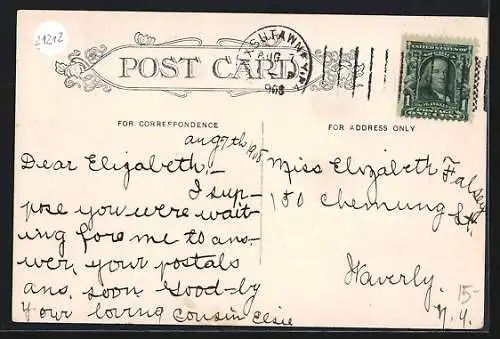 21212
POST CARD
AUG
1908
UNITED STATES OF AMERICA
FOR CORRESPONDENCE
FOR ADDRESS ONLY
aug 7th 1908
Dear Elizabeth,-
I sup-
pose you were wait-
ing fore me to ans-
wer, your postals
ans. soon Good-by
Your loving Cousin Elsie
Miss Elizabeth Falsey
180 Chemung St.
Waverly.
N.Y.
15-